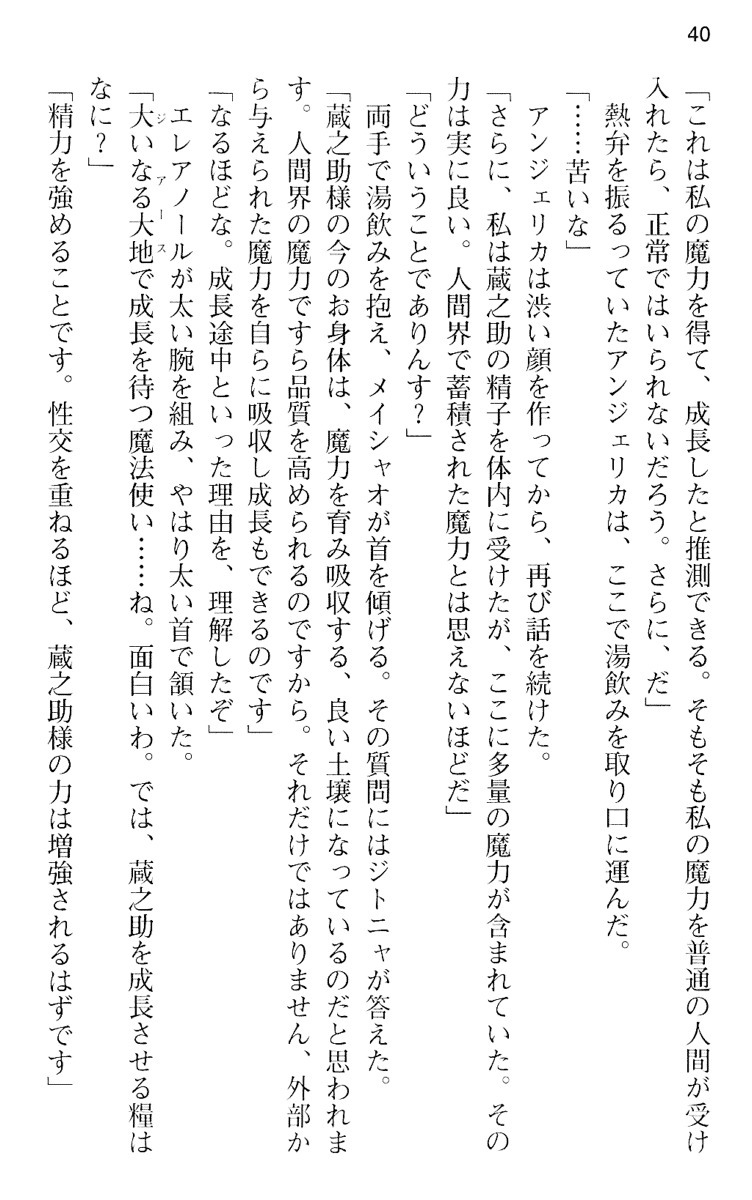 40
「これは私の魔力を得て、成長したと推測できる。そもそも私の魔力を普通の人間が受け
入れたら、正常ではいられないだろう。さらに、だ」
熱弁を振るっていたアンジェリカは、ここで湯飲みを取り口に運んだ。
「……苦いな」
アンジェリカは渋い顔を作ってから、再び話を続けた。
「さらに、私は蔵之助の精子を体内に受けたが、ここに多量の魔力が含まれていた。その
力は実に良い。人間界で蓄積された魔力とは思えないほどだ」
「どういうことでありんす？」
両手で湯飲みを抱え、メイシャオが首を傾げる。その質問にはジトニャが答えた。
「蔵之助様の今のお身体は、魔力を育み吸収する、良い土壌になっているのだと思われま
す。人間界の魔力ですら品質を高められるのですから。それだけではありません、外部か
ら与えられた魔力を自らに吸収し成長もできるのです」
「なるほどな。成長途中といった理由を、理解したぞ」
エレアノールが太い腕を組み、やはり太い首で頷いた。
「大いなる大地ジアースで成長を待つ魔法使い……ね。面白いわ。では、蔵之助を成長させる糧は
なに？」
「精力を強めることです。性交を重ねるほど、蔵之助様の力は増強されるはずです」